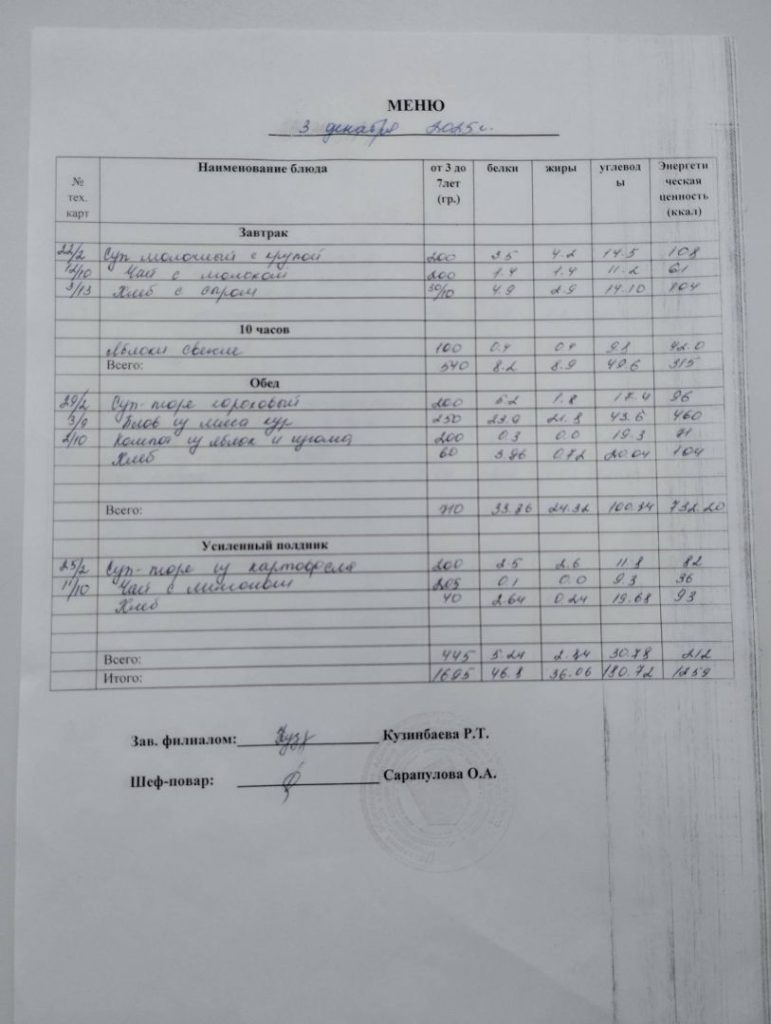 МЕНЮ
3 декабря 2025г.
№ тех. карт Наименование блюда от 3 до 7лет (гр.) белки жиры углеводы Энергетическая ценность (ккал)
Завтрак
22/2 Суп молочный с крупой 200 3.5 4.2 14.5 108
12/10 Чай с молоком 200 1.4 1.4 11.2 61
3/13 Хлеб с сыром 30/10 4.9 2.9 14.10 104
10 часов
Яблоки свежие 100 0.4 0.4 9.8 42.0
Всего: 540 8.2 8.9 49.6 315
Обед
29/2 Суп-пюре гороховый 200 6.2 1.8 17.4 96
3/9 Плов из мяса кур 250 23.0 21.8 43.6 460
2/10 Компот из яблок и изюма 200 0.3 0.0 19.3 71
Хлеб 60 3.96 0.72 20.04 104
Всего: 710 33.86 24.32 100.34 732.20
Усиленный полдник
25/2 Суп-пюре из картофеля 200 2.5 2.6 11.8 82
11/10 Чай с лимоном 205 0.1 0.0 9.3 36
Хлеб 40 2.64 0.24 19.68 93
Всего: 445 5.24 2.84 30.78 212
Итого: 1695 46.8 36.06 180.72 1259
Зав. филиалом: Кузинбаева Р.Т.
Шеф-повар: Сарапулова О.А.